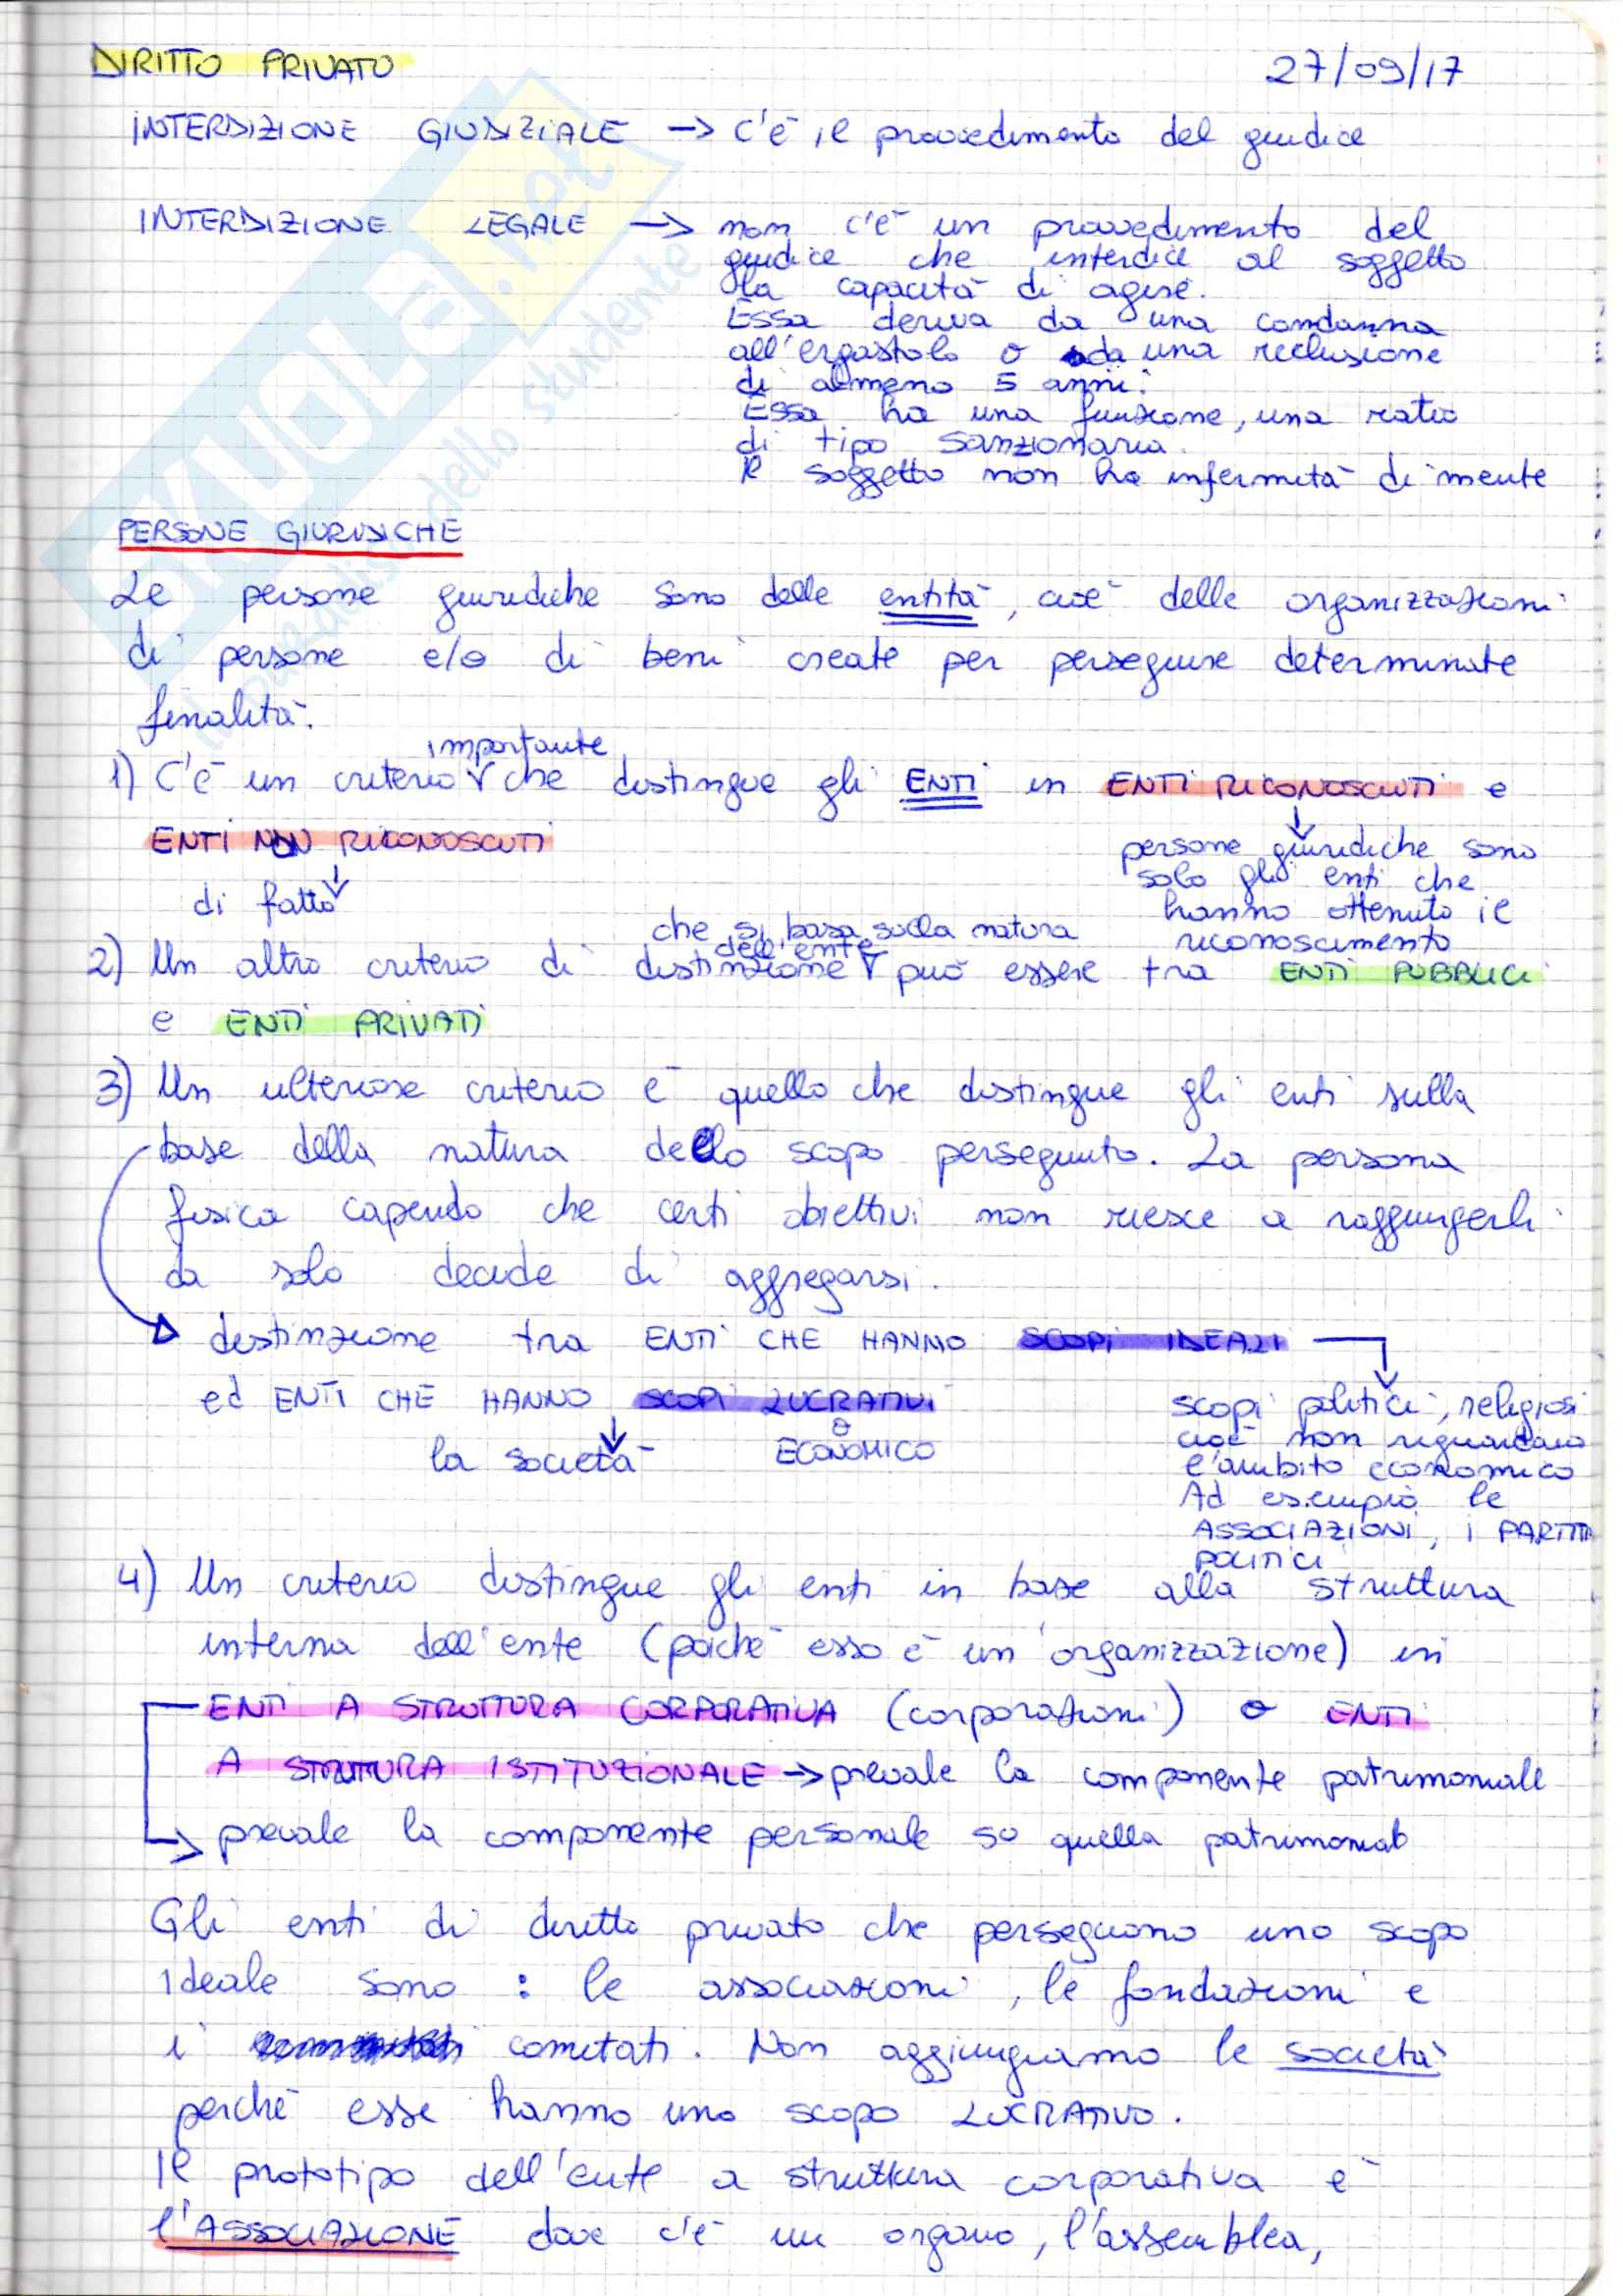 DIRITTO PRIVATO 27/09/17
INTERDIZIONE GIUDIZIALE → C'è il provvedimento del giudice
INTERDIZIONE LEGALE → non c'è un provvedimento del
giudice che interdice al soggetto
la capacità di agire.
Essa deriva da una condanna
all'ergastolo o da una reclusione
di almeno 5 anni.
Essa ha una funzione, una ratio
di tipo sanzionaria.
Il soggetto non ha infermità di mente
PERSONE GIURIDICHE
Le persone giuridiche sono delle entità, cioè delle organizzazioni
di persone e/o di beni create per perseguire determinate
finalità.
importante
1) C'è un criterio che distingue gli ENTI in ENTI RICONOSCIUTI e
ENTI NON RICONOSCUTI
persone giuridiche sono
solo gli enti che
hanno ottenuto il
riconoscimento
di fatto
che si basa sulla natura
dell'ente
2) Un altro criterio di distinzione può essere tra ENTI PUBBLICI
e ENTI PRIVATI
3) Un ulteriore criterio è quello che distingue gli enti sulla
base della natura dello scopo perseguito. La persona
fisica capendo che certi obiettivi non riesce a raggiungerli
da solo decide di aggregarsi.
distinzione tra ENTI CHE HANNO SCOPI IDEALI
ed ENTI CHE HANNO SCOPI LUCRATIVI
o
ECONOMICO
la società
scopi politici, religiosi
cioè non riguardano
l'ambito economico
Ad esempio le
ASSOCIAZIONI, i PARTITI
POLITICI
4) Un criterio distingue gli enti in base alla struttura
interna dell'ente (poiché esso è un organizzazione) in
ENTI A STRUTTURA CORPORATIVA (corporazioni) o ENTI
A STRUTTURA ISTITUZIONALE → prevale la componente patrimoniale
→ prevale la componente personale su quella patrimoniale
Gli enti di diritto privato che perseguono uno scopo
ideale sono : le associazioni, le fondazioni e
i comitati. Non aggiungiamo le società
perché esse hanno uno scopo LUCRATIVO.
Il prototipo dell'ente a struttura corporativa è
l'ASSOCIAZIONE dove c'è un organo, l'assemblea,
SKUOLA.net
il paradiso dello studente